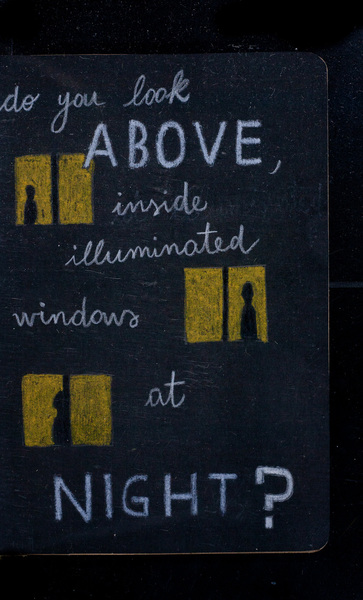 do you look
ABOVE,
inside
illuminated
windows
at
NIGHT?